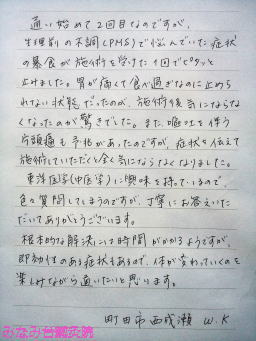 通い始めて2回目なのですが、
生理前の不調(PMS)で悩んでいた症状
の暴食が施術を受けた1回でピタッと
止まりました。胃が痛くて食べ過ぎなのに止めら
れない状態だったのが、施術後気にならな
くなったのが驚きでした。また、嘔吐を伴う
片頭痛も予兆があったのですが、症状を伝えて
施術していただくと全く気にならなくなりました。
東洋医学(中医学)に興味を持っているので、
色々質問してしまうのですが、丁寧にお答えいた
だいてありがとうございます。
根本的な解決には時間がかかるようですが、
即効性のある症状もあるので、体が変わっていくのを
楽しみながら通いたいと思います。
町田市西成瀬 W.K
みなみ台鍼灸院